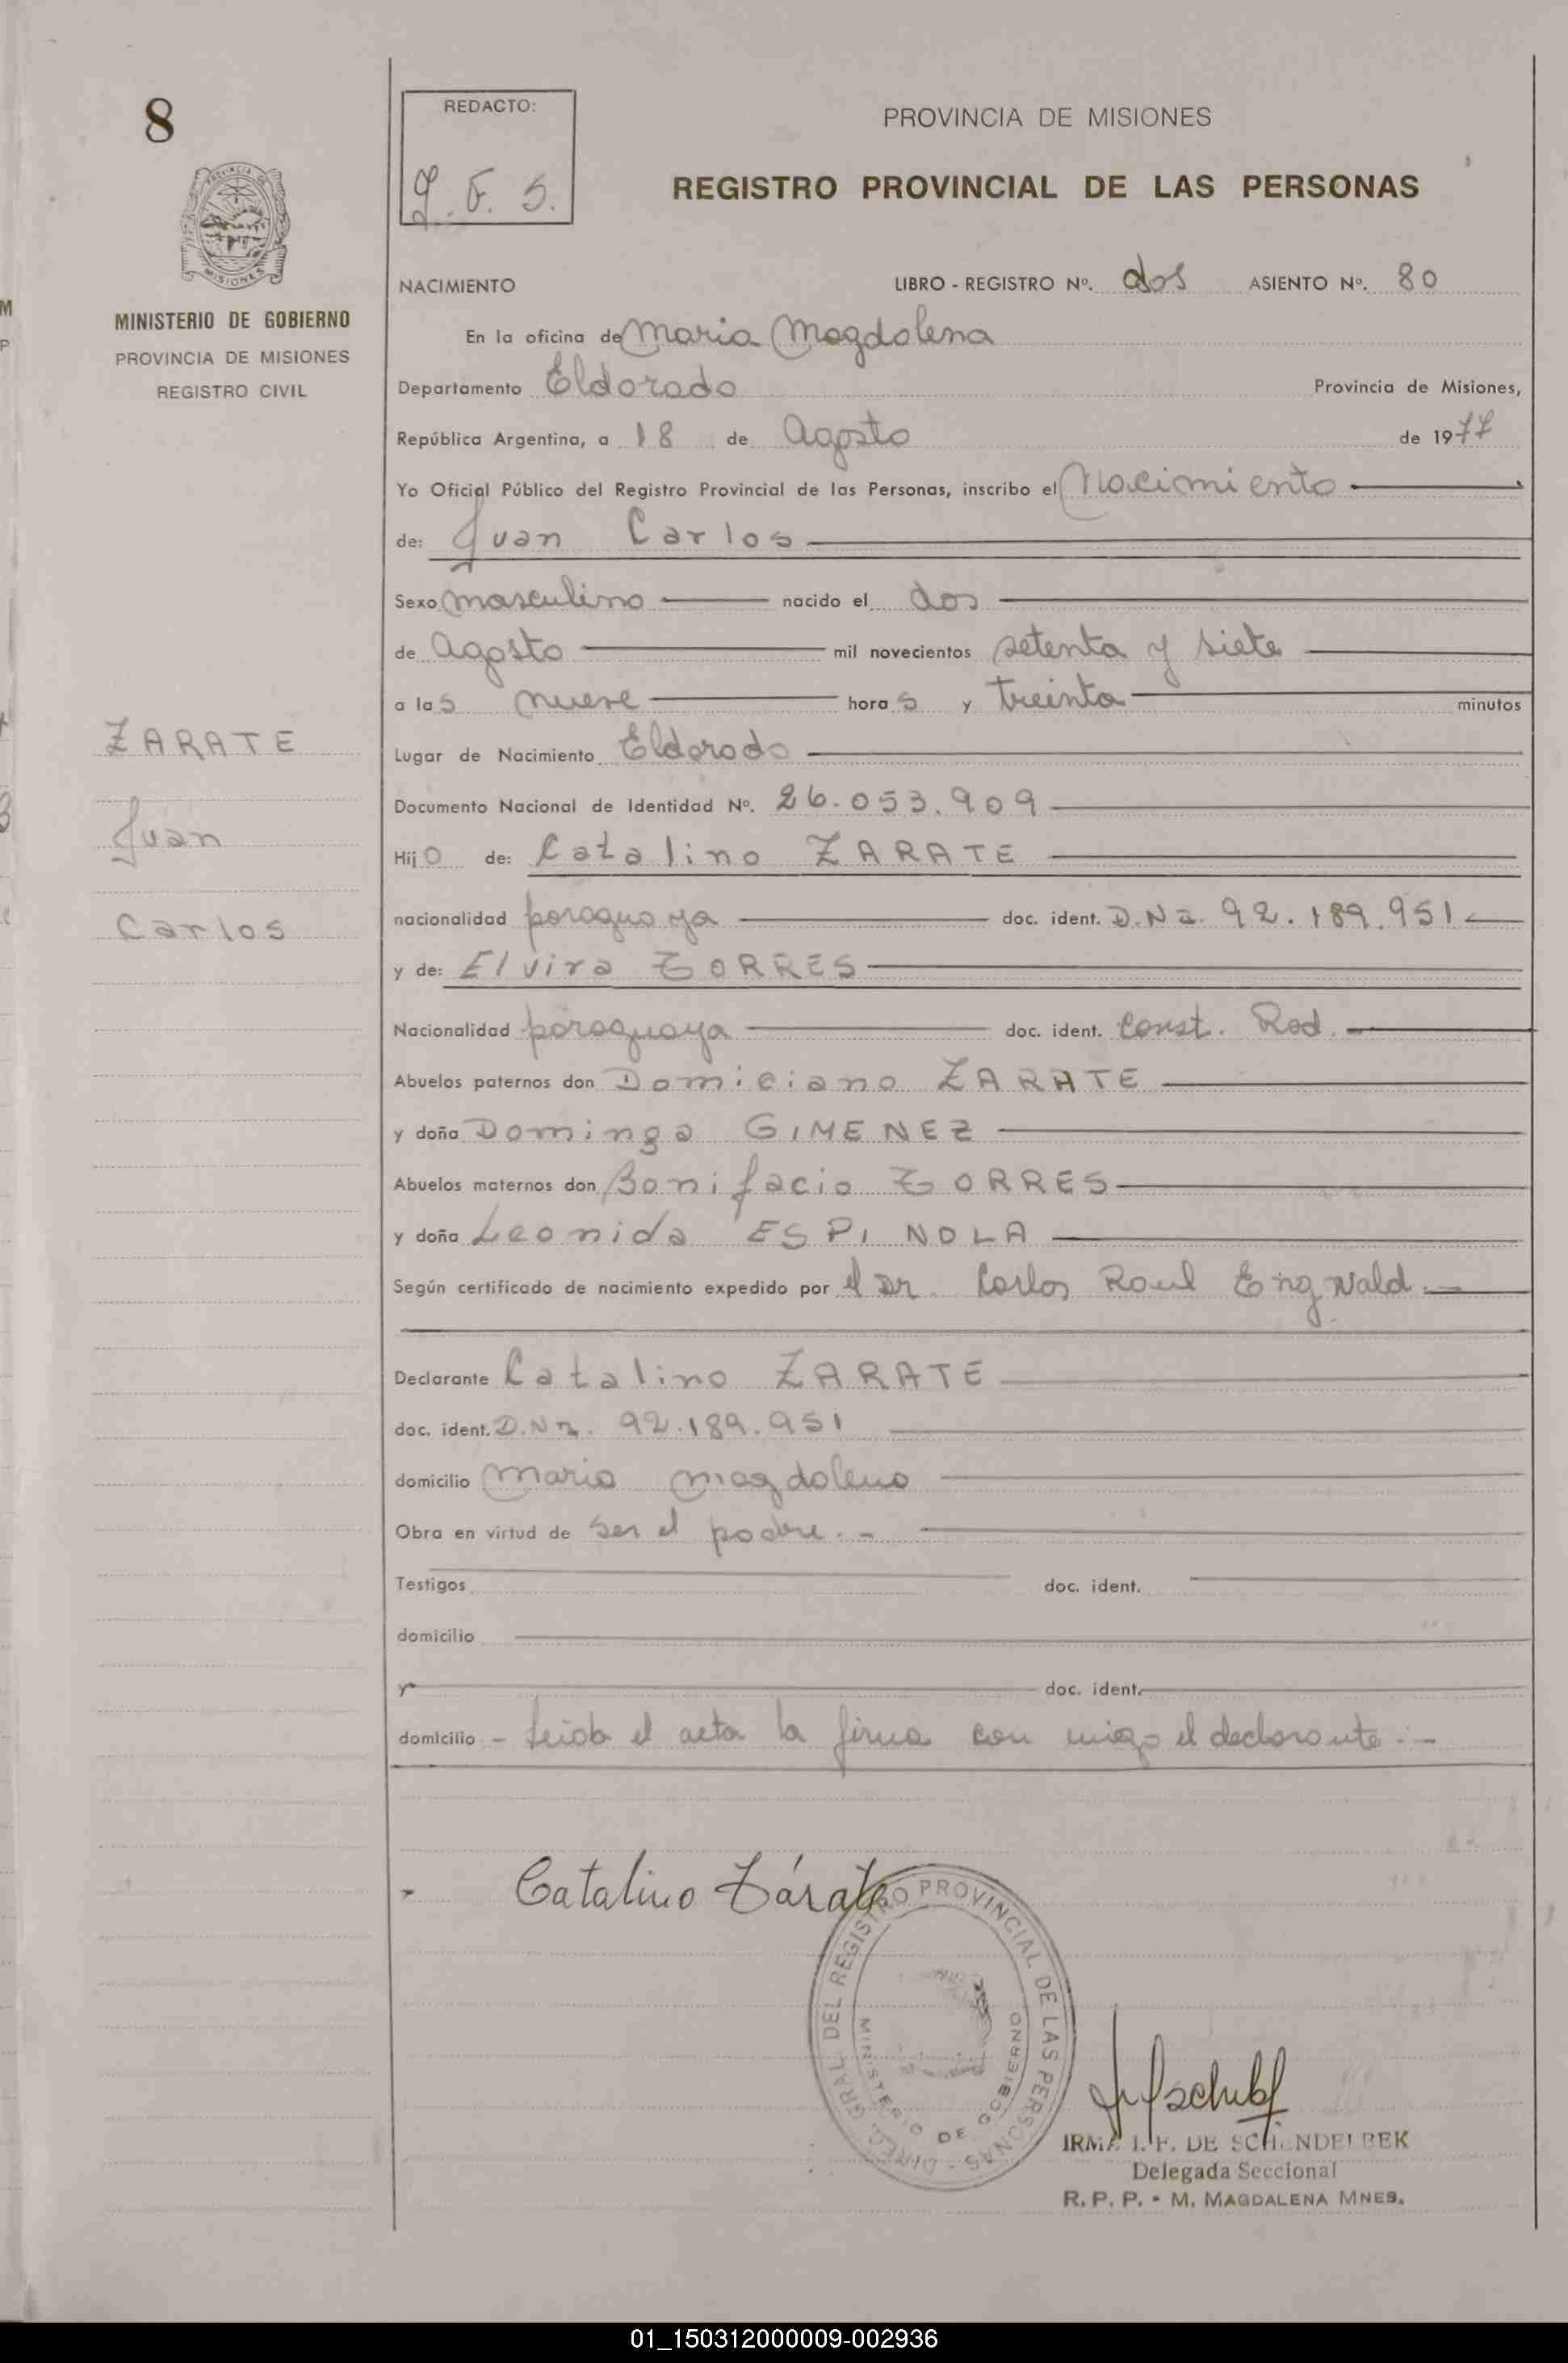 8
MINISTERIO DE GOBIERNO
PROVINCIA DE MISIONES
REGISTRO CIVIL
ZARATE
Juan
Carlos
REDACTO:
PROVINCIA DE MISIONES
REGISTRO PROVINCIAL DE LAS PERSONAS
NACIMIENTO LIBRO - REGISTRO Nº. dos ASIENTO Nº. 80
En la oficina de Maria Magdalena
Departamento Eldorado Provincia de Misiones,
República Argentina, a 18 de Agosto de 1977
Yo Oficial Público del Registro Provincial de las Personas, inscribo el Nacimiento
de: Juan Carlos
Sexo masculino nacido el dos
de Agosto mil novecientos setenta y siete
a las nueve horas y treinta minutos
Lugar de Nacimiento Eldorado
Documento Nacional de Identidad Nº. 26.053.909
Hijo de: Catalino ZARATE
nacionalidad paraguaya doc. ident. D.N.I. 92.189.951
y de: Elvira TORRES
Nacionalidad paraguaya doc. ident. Const. Rad.
Abuelos paternos don Domiciano ZARATE
y doña Dominga GIMENEZ
Abuelos maternos don Bonifacio TORRES
y doña Leonida ESPINOLA
Según certificado de nacimiento expedido por el Dr. Carlos Raul Engwald
Declarante Catalino ZARATE
doc. ident. D.N.I. 92.189.951
domicilio Maria Magdalena
Obra en virtud de ser el padre.-
Testigos doc. ident.
domicilio
y doc. ident.
domicilio - Leida el acta la firma con migo el declarante.-
Catalino Zárate
DIREC. GRAL. DEL REGISTRO PROVINCIAL DE LAS PERSONAS -
MINISTERIO DE GOBIERNO
IRMA I. F. DE SCHENDELBEK
Delegada Seccional
R. P. P. - M. MAGDALENA MNES.
01_150312000009-002936